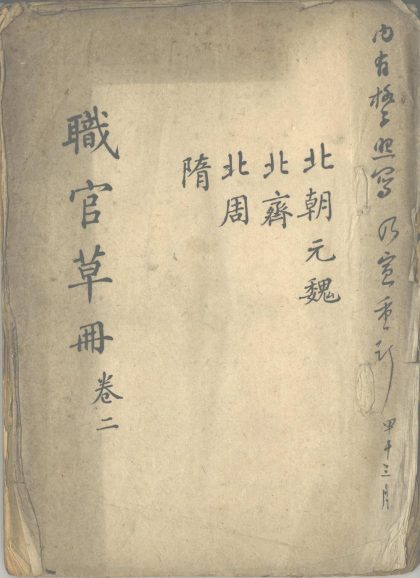 内有格子照写乃宣重訂
甲午三月
北朝元魏
北齊
北周
隋
職官草冊 卷二